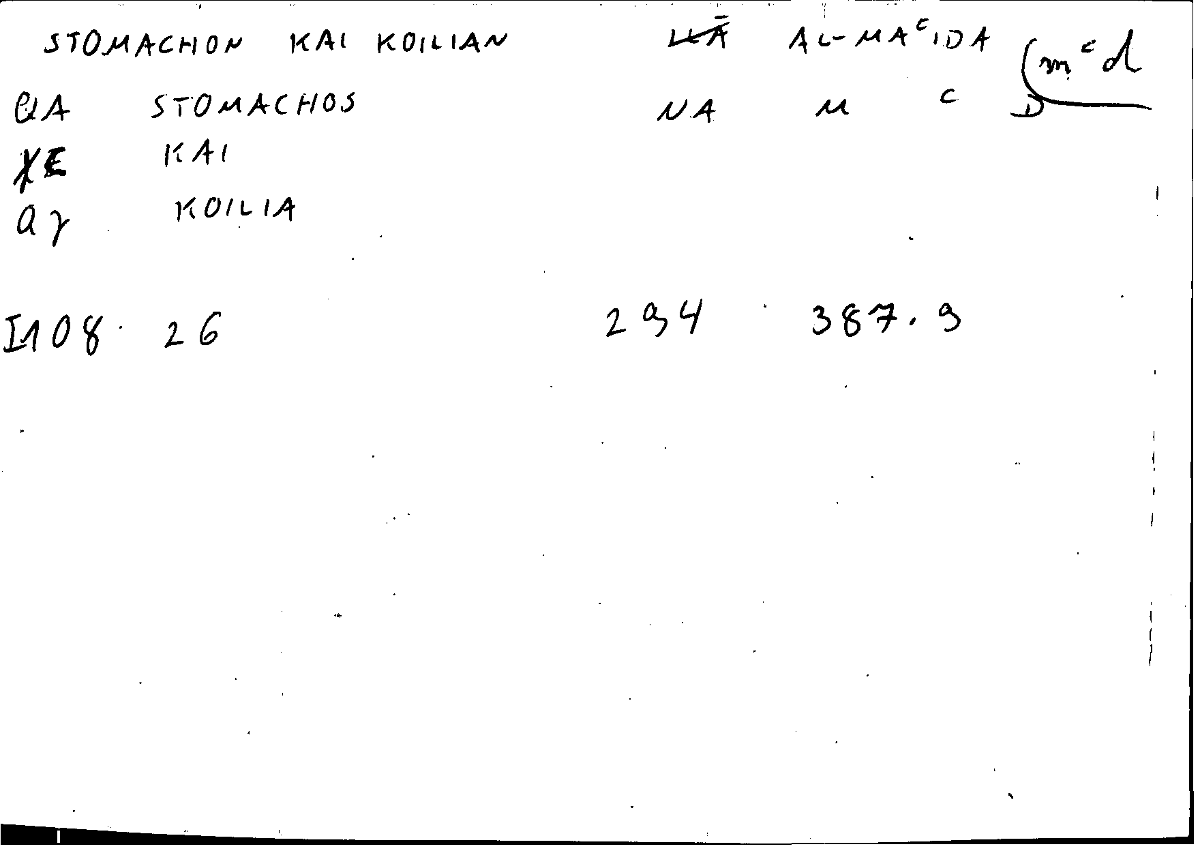 STOMACHON KAI KOILIAN AL-MAᶜIDA
mᶜd
QA STOMACHOS NA M ᶜ D
KAI
KOILIA
108 26 294 387.9